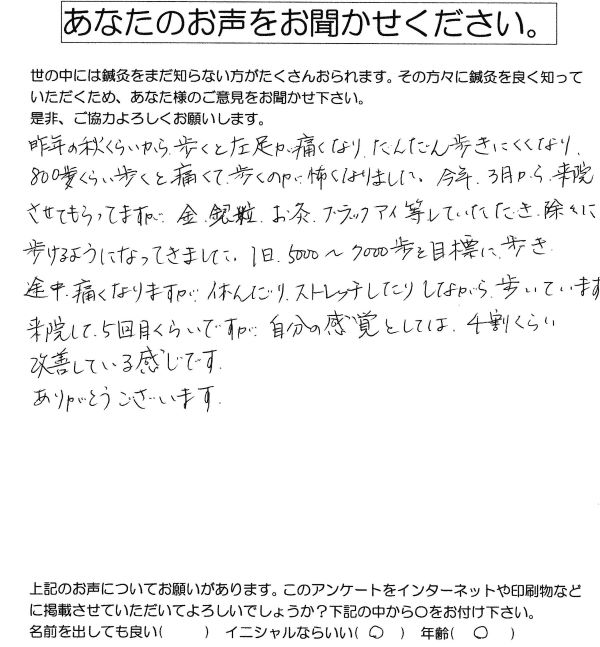 あなたのお声をお聞かせください。
世の中には鍼灸をまだ知らない方がたくさんおられます。その方々に鍼灸を良く知って
いただくため、あなた様のご意見をお聞かせ下さい。
是非、ご協力よろしくお願いします。
昨年の秋くらいから、歩くと左足が痛くなり、だんだん歩きにくくなり、
800歩くらい歩くと痛くて、歩くのが怖くなりました。今年、3月から、来院
させてもらってますが、金、銀粒、お灸、ブラックアイ等していただき、除々に
歩けるようになってきました。1日、5000〜7000歩を目標に、歩き
途中、痛くなりますが、休んだり、ストレッチしたりしながら、歩いています
来院して、5回目くらいですが、自分の感覚としては、4割くらい
改善している感じです。
ありがとうございます。
上記のお声についてお願いがあります。このアンケートをインターネットや印刷物など
に掲載させていただいてよろしいでしょうか？下記の中から〇をお付け下さい。
名前を出しても良い(　　　) イニシャルならいい( 〇 ) 年齢( 〇 )